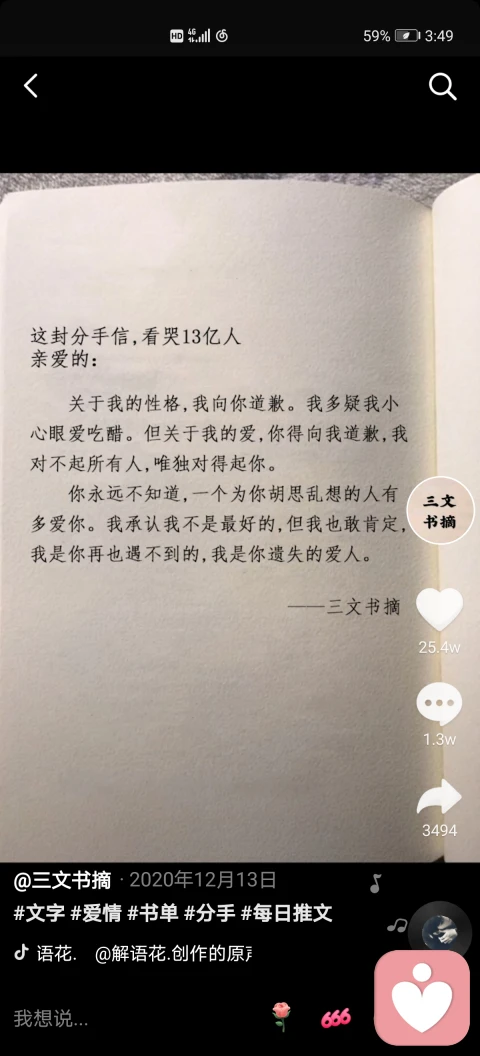 HD 4G 59% 3:49
这封分手信，看哭13亿人
亲爱的：
关于我的性格，我向你道歉。我多疑我小
心眼爱吃醋。但关于我的爱，你得向我道歉，我
对不起所有人，唯独对得起你。
你永远不知道，一个为你胡思乱想的人有
多爱你。我承认我不是最好的，但我也敢肯定，
我是你再也遇不到的，我是你遗失的爱人。
——三文书摘
三文
书摘
25.4w
1.3w
3494
@三文书摘 · 2020年12月13日
#文字 #爱情 #书单 #分手 #每日推文
语花. @解语花.创作的原
我想说...
666